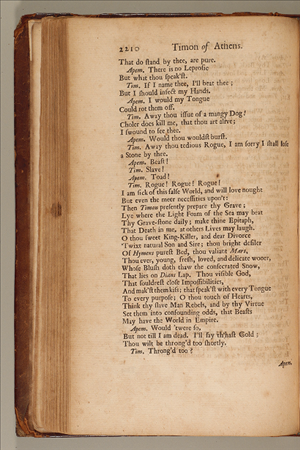 2210 Timon of Athens.
That do stand by thee, are pure.
Apem. There is no Leprosie
But what thou speak'st.
Tim. If I name thee, I'll beat thee;
But I should infect my Hands.
Apem. I would my Tongue
Could rot them off.
Tim. Away thou issue of a mangy Dog!
Choler does kill me, that thou art alive;
I swound to see thee.
Apem. Would thou wouldst burst.
Tim. Away thou tedious Rogue, I am sorry I shall lose
a Stone by thee.
Apem. Beast!
Tim. Slave!
Apem. Toad!
Tim. Rogue! Rogue! Rogue!
I am sick of this false World, and will love nought
But even the meer necessities upon't:
Then Timon presently prepare thy Grave;
Lye where the Light Foam of the Sea may beat
Thy Grave-stone daily; make thine Epitaph,
That Death in me, at others Lives may laugh.
O thou sweet King-Killer, and dear Divorce
'Twixt natural Son and Sire; thou bright defiler
Of Hymens purest Bed, thou valiant Mars,
Thou ever, young, fresh, loved, and delicate wooer,
Whose Blush doth thaw the consecrated Snow,
That lies on Dians Lap. Thou visible God,
That souldrest close Impossibilities,
And mak'st them kiss; that speak'st with every Tongue
To every purpose; O thou touch of Hearts,
Think thy slave Man Rebels, and by thy Virtue
Set them into confounding odds, that Beasts
May have the World in Empire.
Apem. Would 'twere so,
But not till I am dead. I'll say th'hast Gold:
Thou wilt be throng'd too shortly.
Tim. Throng'd too?
Apem.